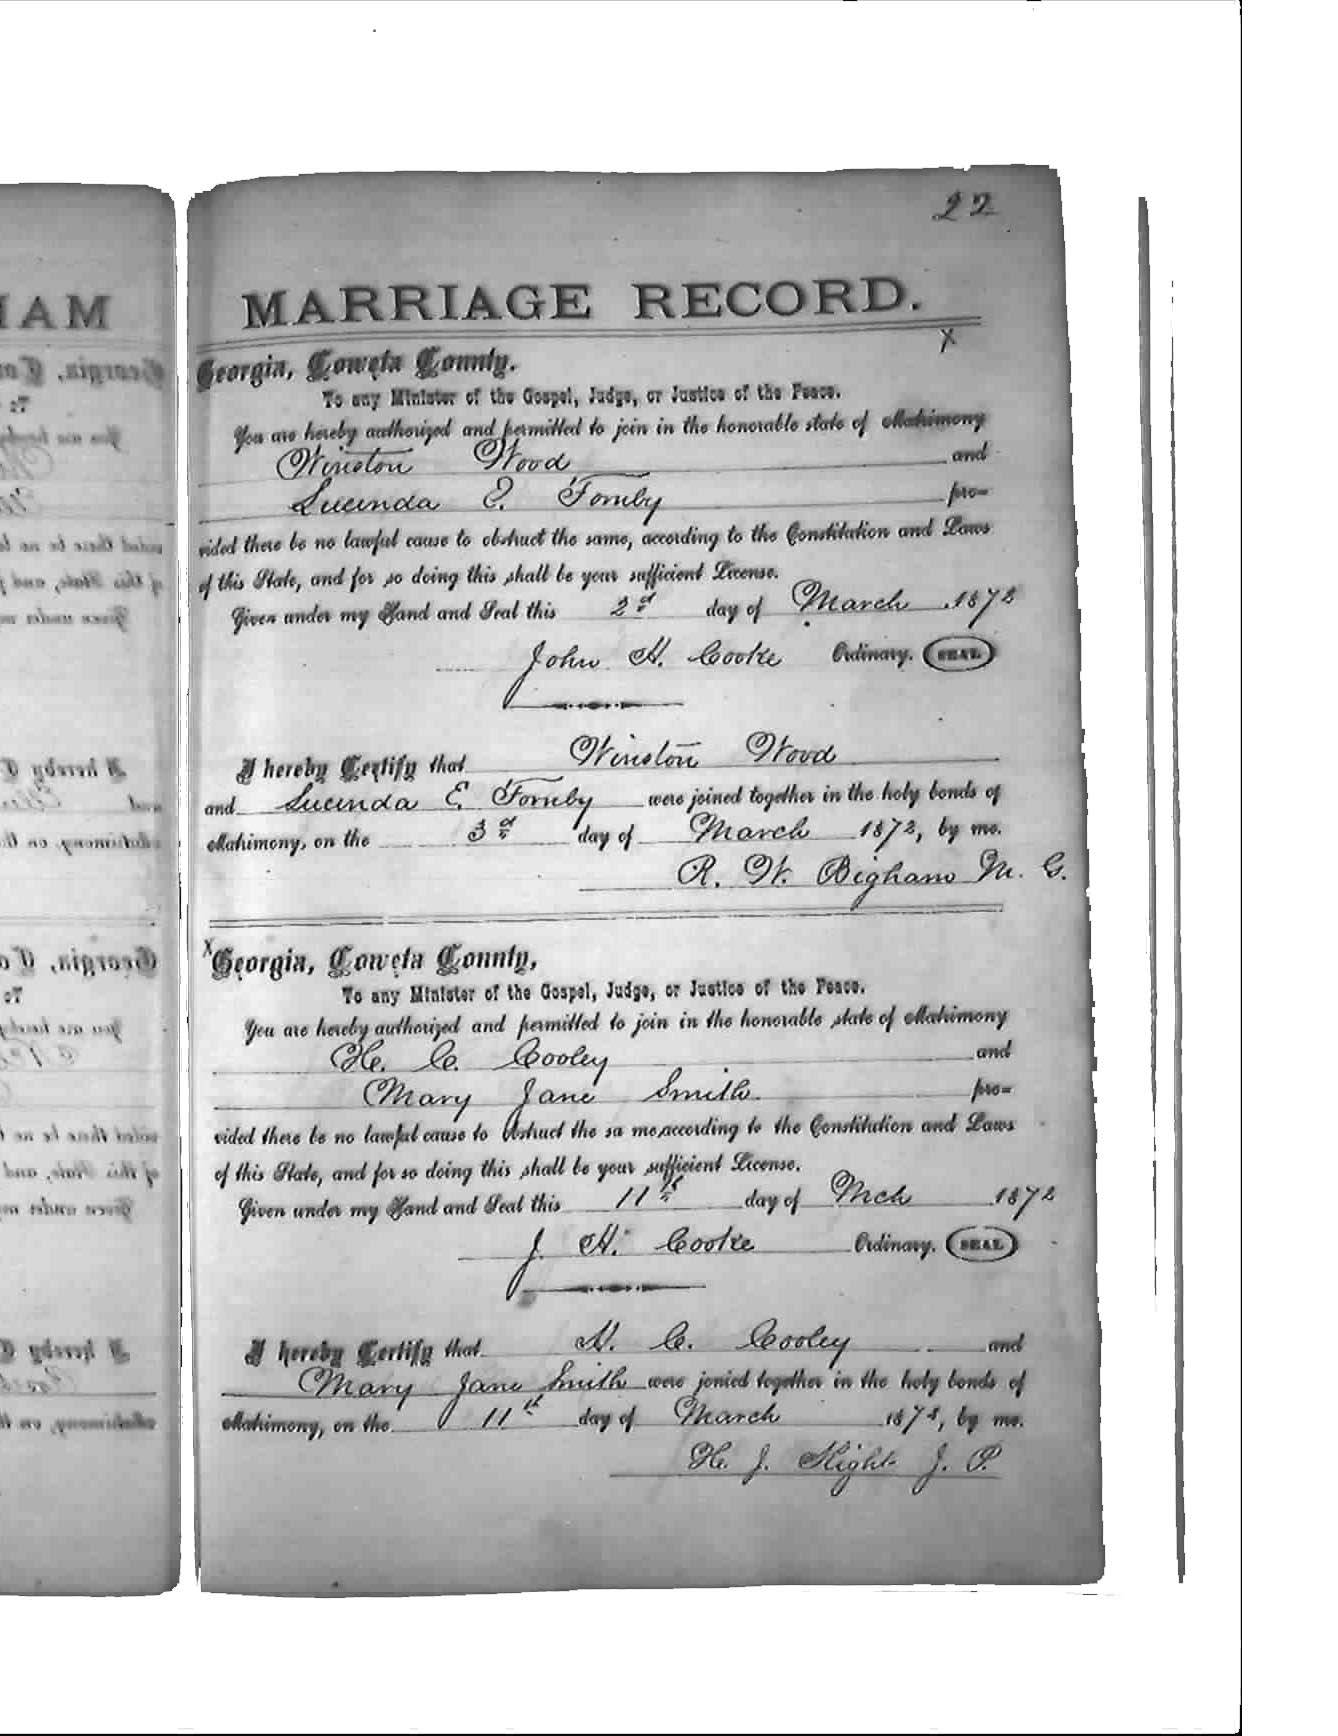 22
MARRIAGE RECORD.
X
Georgia, Coweta County.
To any Minister of the Gospel, Judge, or Justice of the Peace.
You are hereby authorized and permitted to join in the honorable state of Matrimony
Winston Wood and
Lucinda E. Fornby pro=
vided there be no lawful cause to obstruct the same, according to the Constitution and Laws
of this State, and for so doing this shall be your sufficient License.
Given under my Hand and Seal this 2d day of March 1872
John H. Cooke Ordinary. SEAL
I hereby Certify that Winston Wood
and Lucinda E. Fornby were joined together in the holy bonds of
Matrimony, on the 3d day of March 1872, by me.
R. W. Bigham M. G.
X Georgia, Coweta County,
To any Minister of the Gospel, Judge, or Justice of the Peace.
You are hereby authorized and permitted to join in the honorable state of Matrimony
H. C. Cooley and
Mary Jane Smith pro=
vided there be no lawful cause to obstruct the sa me,according to the Constitution and Laws
of this State, and for so doing this shall be your sufficient License.
Given under my Hand and Seal this 11th day of Mch 1872
J. H. Cooke Ordinary. SEAL
I hereby Certify that H. C. Cooley and
Mary Jane Smith were jonied together in the holy bonds of
Matrimony, on the 11th day of March 1872, by me.
H. J. Hight J. P.